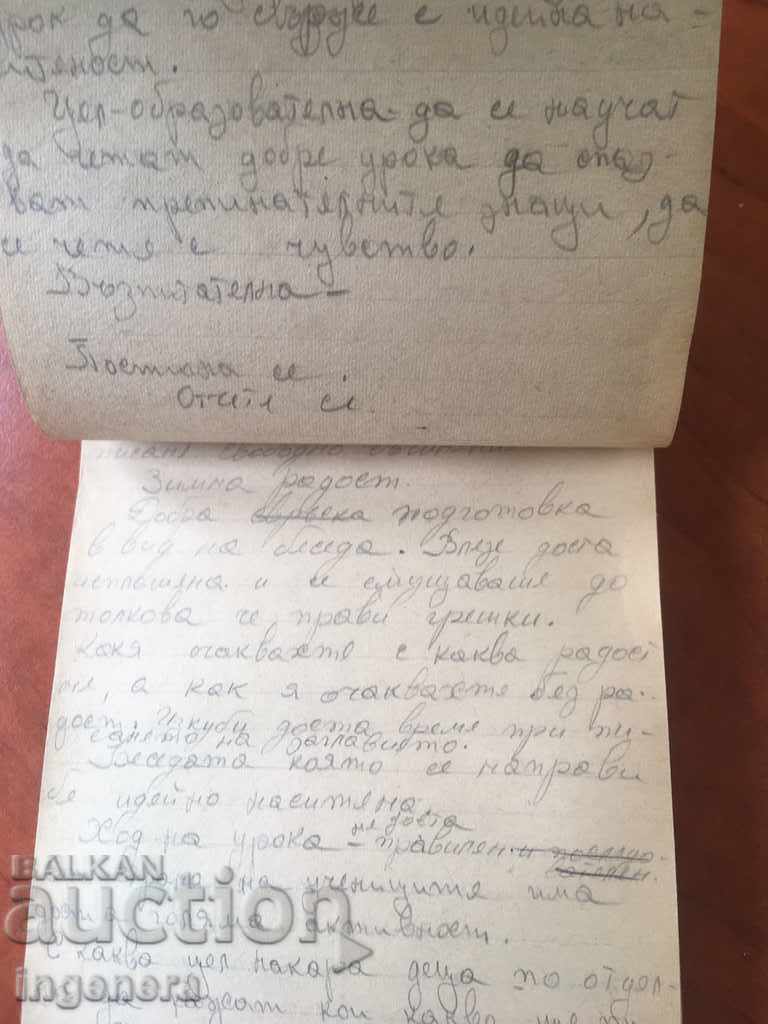 урок да го свърже с идейна на-
ситеност.
Цел-образователна-да се научат
да четат добре урока да спаз-
ват препинателните знаци, да
се чете с чувство.
Възпитателна-
Постигна се.
Отчете се.
писане свободно съчинение
Зимна радост.
Добра връзка подготовка
в вид на беседа. Влезе доста
изплашена и се смущаваше до
толкова че прави грешки.
Какя очаквахте с каква радост
те, а как я очаквахте без ра-
дост. Изгуби доста време при пи-
сането на заглавието.
Беседата която се направи
бе идейно наситена.
Ход на урока - не доста правилен и последо-
вателен.
на учениците има
голяма активност.
С каква цел накара деца по отдел-
да кажат кой какво
BALKAN
auction
ingenera